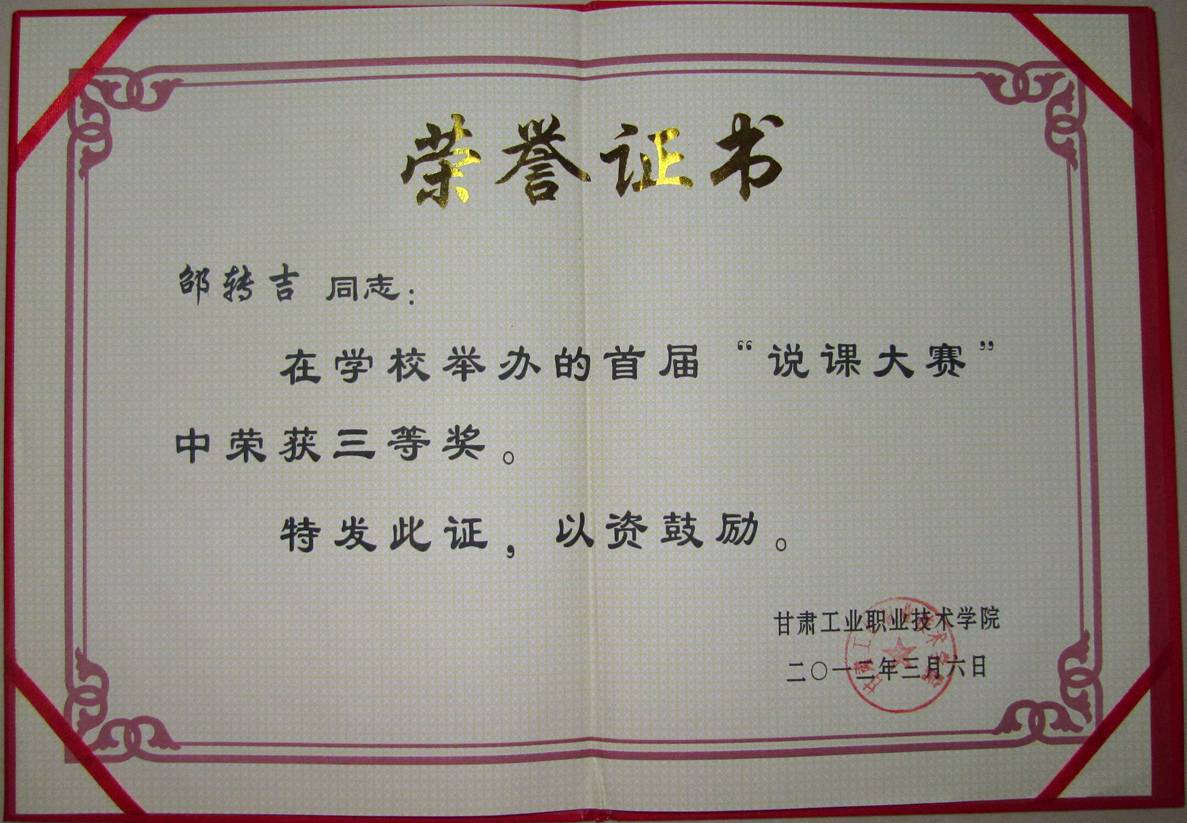 荣誉证书
邵转吉 同志：
在学校举办的首届“说课大赛”
中荣获三等奖。
特发此证，以资鼓励。
甘肃工业职业技术学院
二〇一二年三月六日